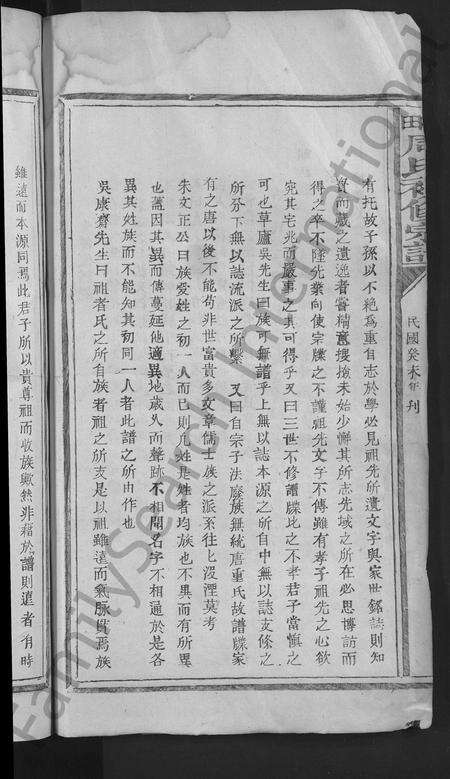 周氏
修宗譜
民國癸未年刊
有托故子孫以不絕為重自志於學必見祖先所遺文字與家世銘誌則知
寶而藏之遺逸者嘗精意搜撿未始少懈其所志先域之所在必思博訪而
得之卒不隆先業向使宗牒之不謹祖先文字不傳雖有孝子祖先之心欲
究其宅兆而嚴事之其可得乎又曰三世不修譜牒比之不孝君子當慎之
可也草廬吳先生曰族可無譜乎上無以誌本源之所自中無以誌支條之
所分下無以誌流派之所繫 又曰自宗子法廢族無統唐重氏故譜牒家
有之唐以後不能苟非世富貴多文章儒士族之派系往往湮沒莫考
朱文正公曰族愛姓之初一人而已則凡姓是姓者均族也不異而有所異
也蓋因其異而傳蔓延他適異地歲久而聲跡不相聞名字不相通於是各
異其姓族而不能知其初同一人者此譜之所由作也
吳康齋先生曰祖者氏之所自族者祖之所支是以祖雖遠而氣脉貫焉族
雖遠而本源同焉此君子所以貴尊祖而收族歟然非藉於譜則遠者有時
FamilySearch International